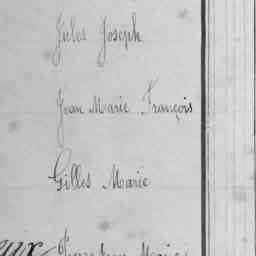 Jules Joseph
Jean Marie François
Gilles Marie